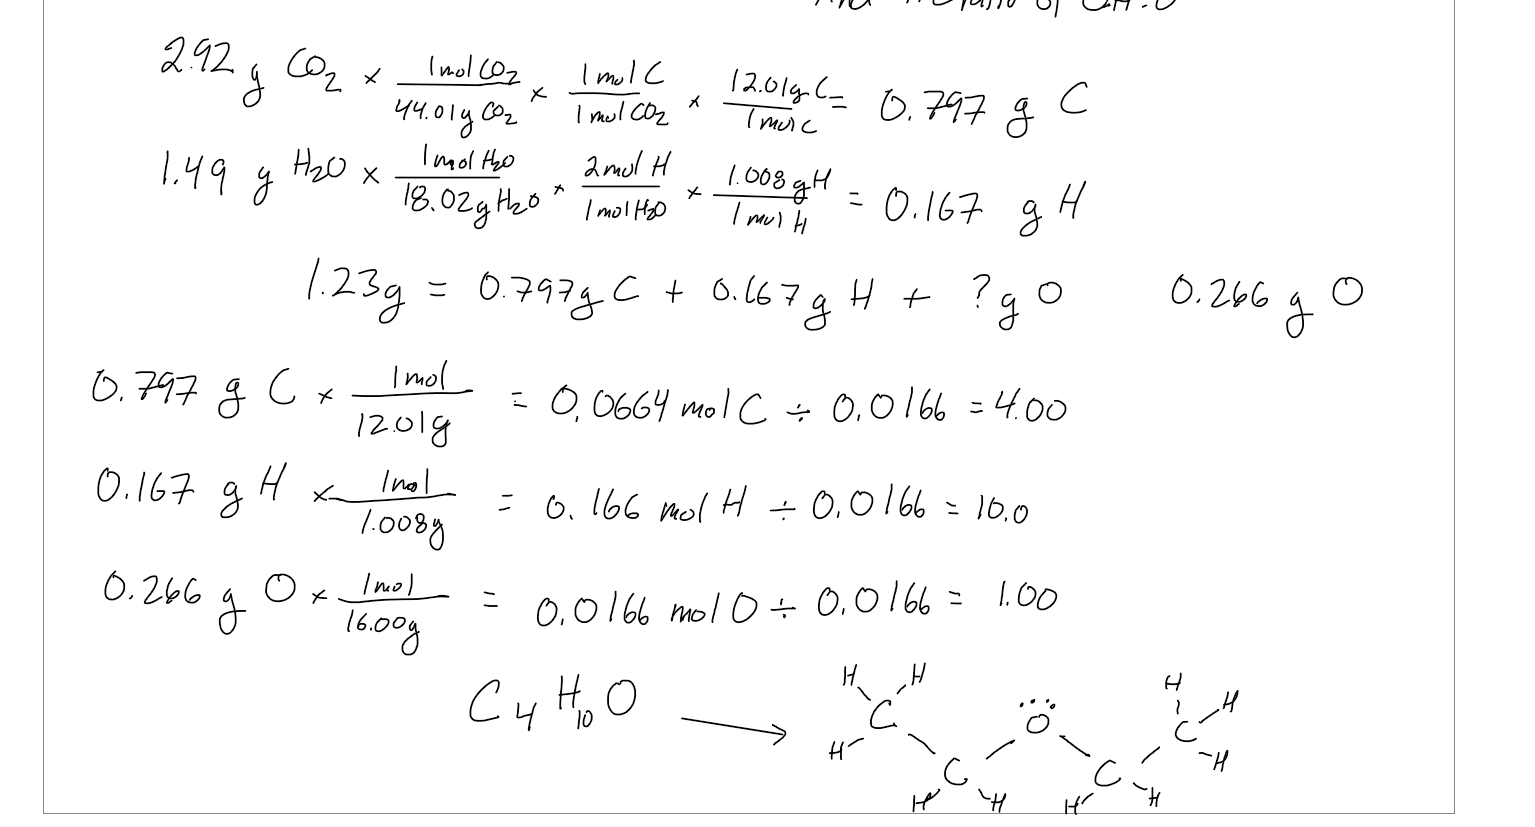 of
2.92 g CO2 × 1 mol CO2 / 44.01 g CO2 × 1 mol C / 1 mol CO2 × 12.01 g C / 1 mol C = 0.797 g C
1.49 g H2O × 1 mol H2O / 18.02 g H2O × 2 mol H / 1 mol H2O × 1.008 g H / 1 mol H = 0.167 g H
1.23g = 0.797g C + 0.167g H + ? g O 0.266 g O
0.797 g C × 1 mol / 12.01g = 0.0664 mol C ÷ 0.0166 = 4.00
0.167 g H × 1 mol / 1.008g = 0.166 mol H ÷ 0.0166 = 10.0
0.266 g O × 1 mol / 16.00g = 0.0166 mol O ÷ 0.0166 = 1.00
C4H10O → H H H H
C O C
H C C H
H H H H